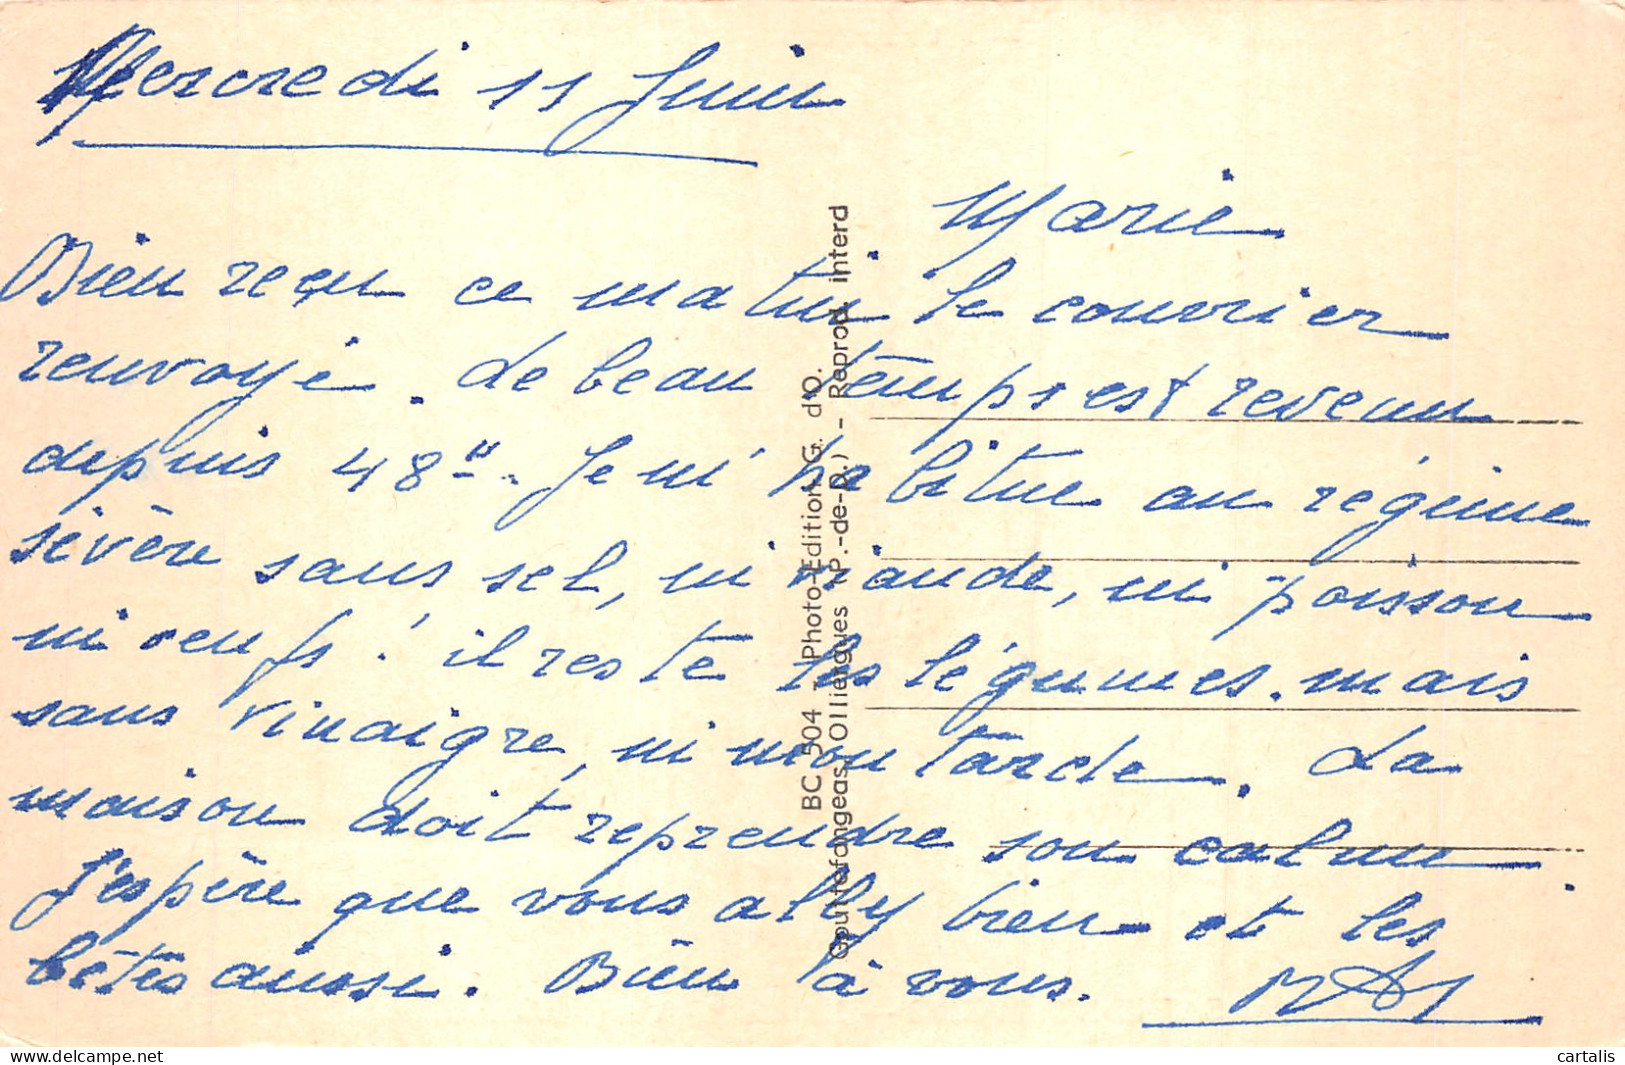 Mercredi 11 Juin
Marie
Bien reçu ce matin le courrier
renvoyé. Le beau temps est revenu
depuis 48 H. Je m'habitue au régime
sévère sans sel, ni viande, ni poisson
ni oeufs ! il reste les légumes. mais
sans vinaigre, ni moutarde. La
maison doit reprendre son calme.
J'espère que vous allez bien et les
bêtes aussi. Bien à vous.
BC 504 - Photo-Edition G. d'O.
Goutafangeas, Olliergues (P.-de-D.) - Reprod. interd
cartalis
www.delcampe.net